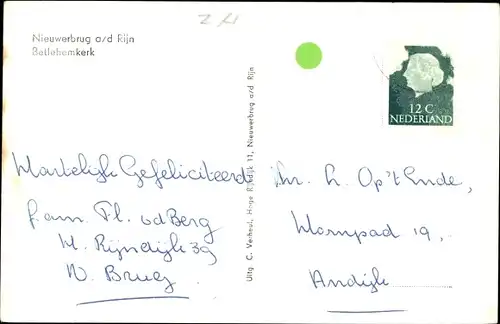 Nieuwerbrug a/d Rijn
Betlehemkerk
12 C
NEDERLAND
Hartelijk Gefeliciteerd
fam. Fl. vd Berg
H. Rijndijk 39
N. Brug
Uitg. C. Verheul, Hoge Rijndijk 11, Nieuwerbrug a/d. Rijn
Dhr. L. Op 't Ende,
Hornpad 19,
Andijk